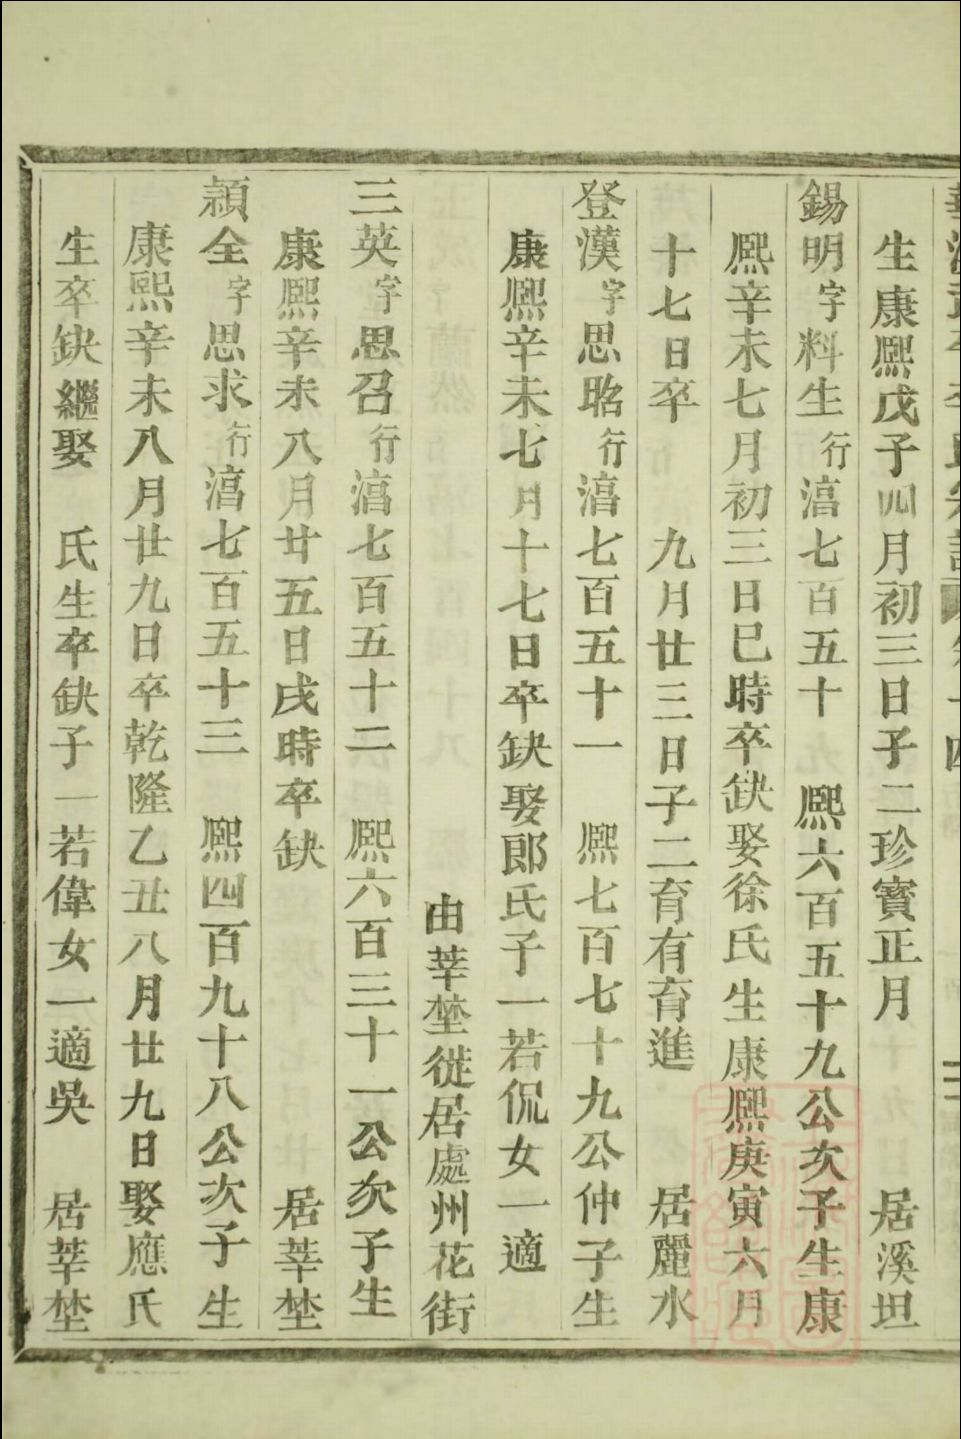 生康熙戊子四月初三日子二珍寶正月 居溪坦
錫明字料生行㵙七百五十 熙六百五十九公次子生康
熙辛未七月初三日巳時卒缺娶徐氏生康熙庚寅六月
十七日卒 九月廿三日子二育有育進 居麗水
登漢字思晗行㵙七百五十一 熙七百七十九公仲子生
康熙辛未七月十七日卒缺娶郎氏子一若侃女一適
由莘埜徙居處州花街
三英字思召行㵙七百五十二 熙六百三十一公次子生
康熙辛未八月廿五日戌時卒缺 居莘埜
頴全字思求行㵙七百五十三 熙四百九十八公次子生
康熙辛未八月廿九日卒乾隆乙丑八月廿九日娶應氏
生卒缺繼娶 氏生卒缺子一若偉女一適吳 居莘埜